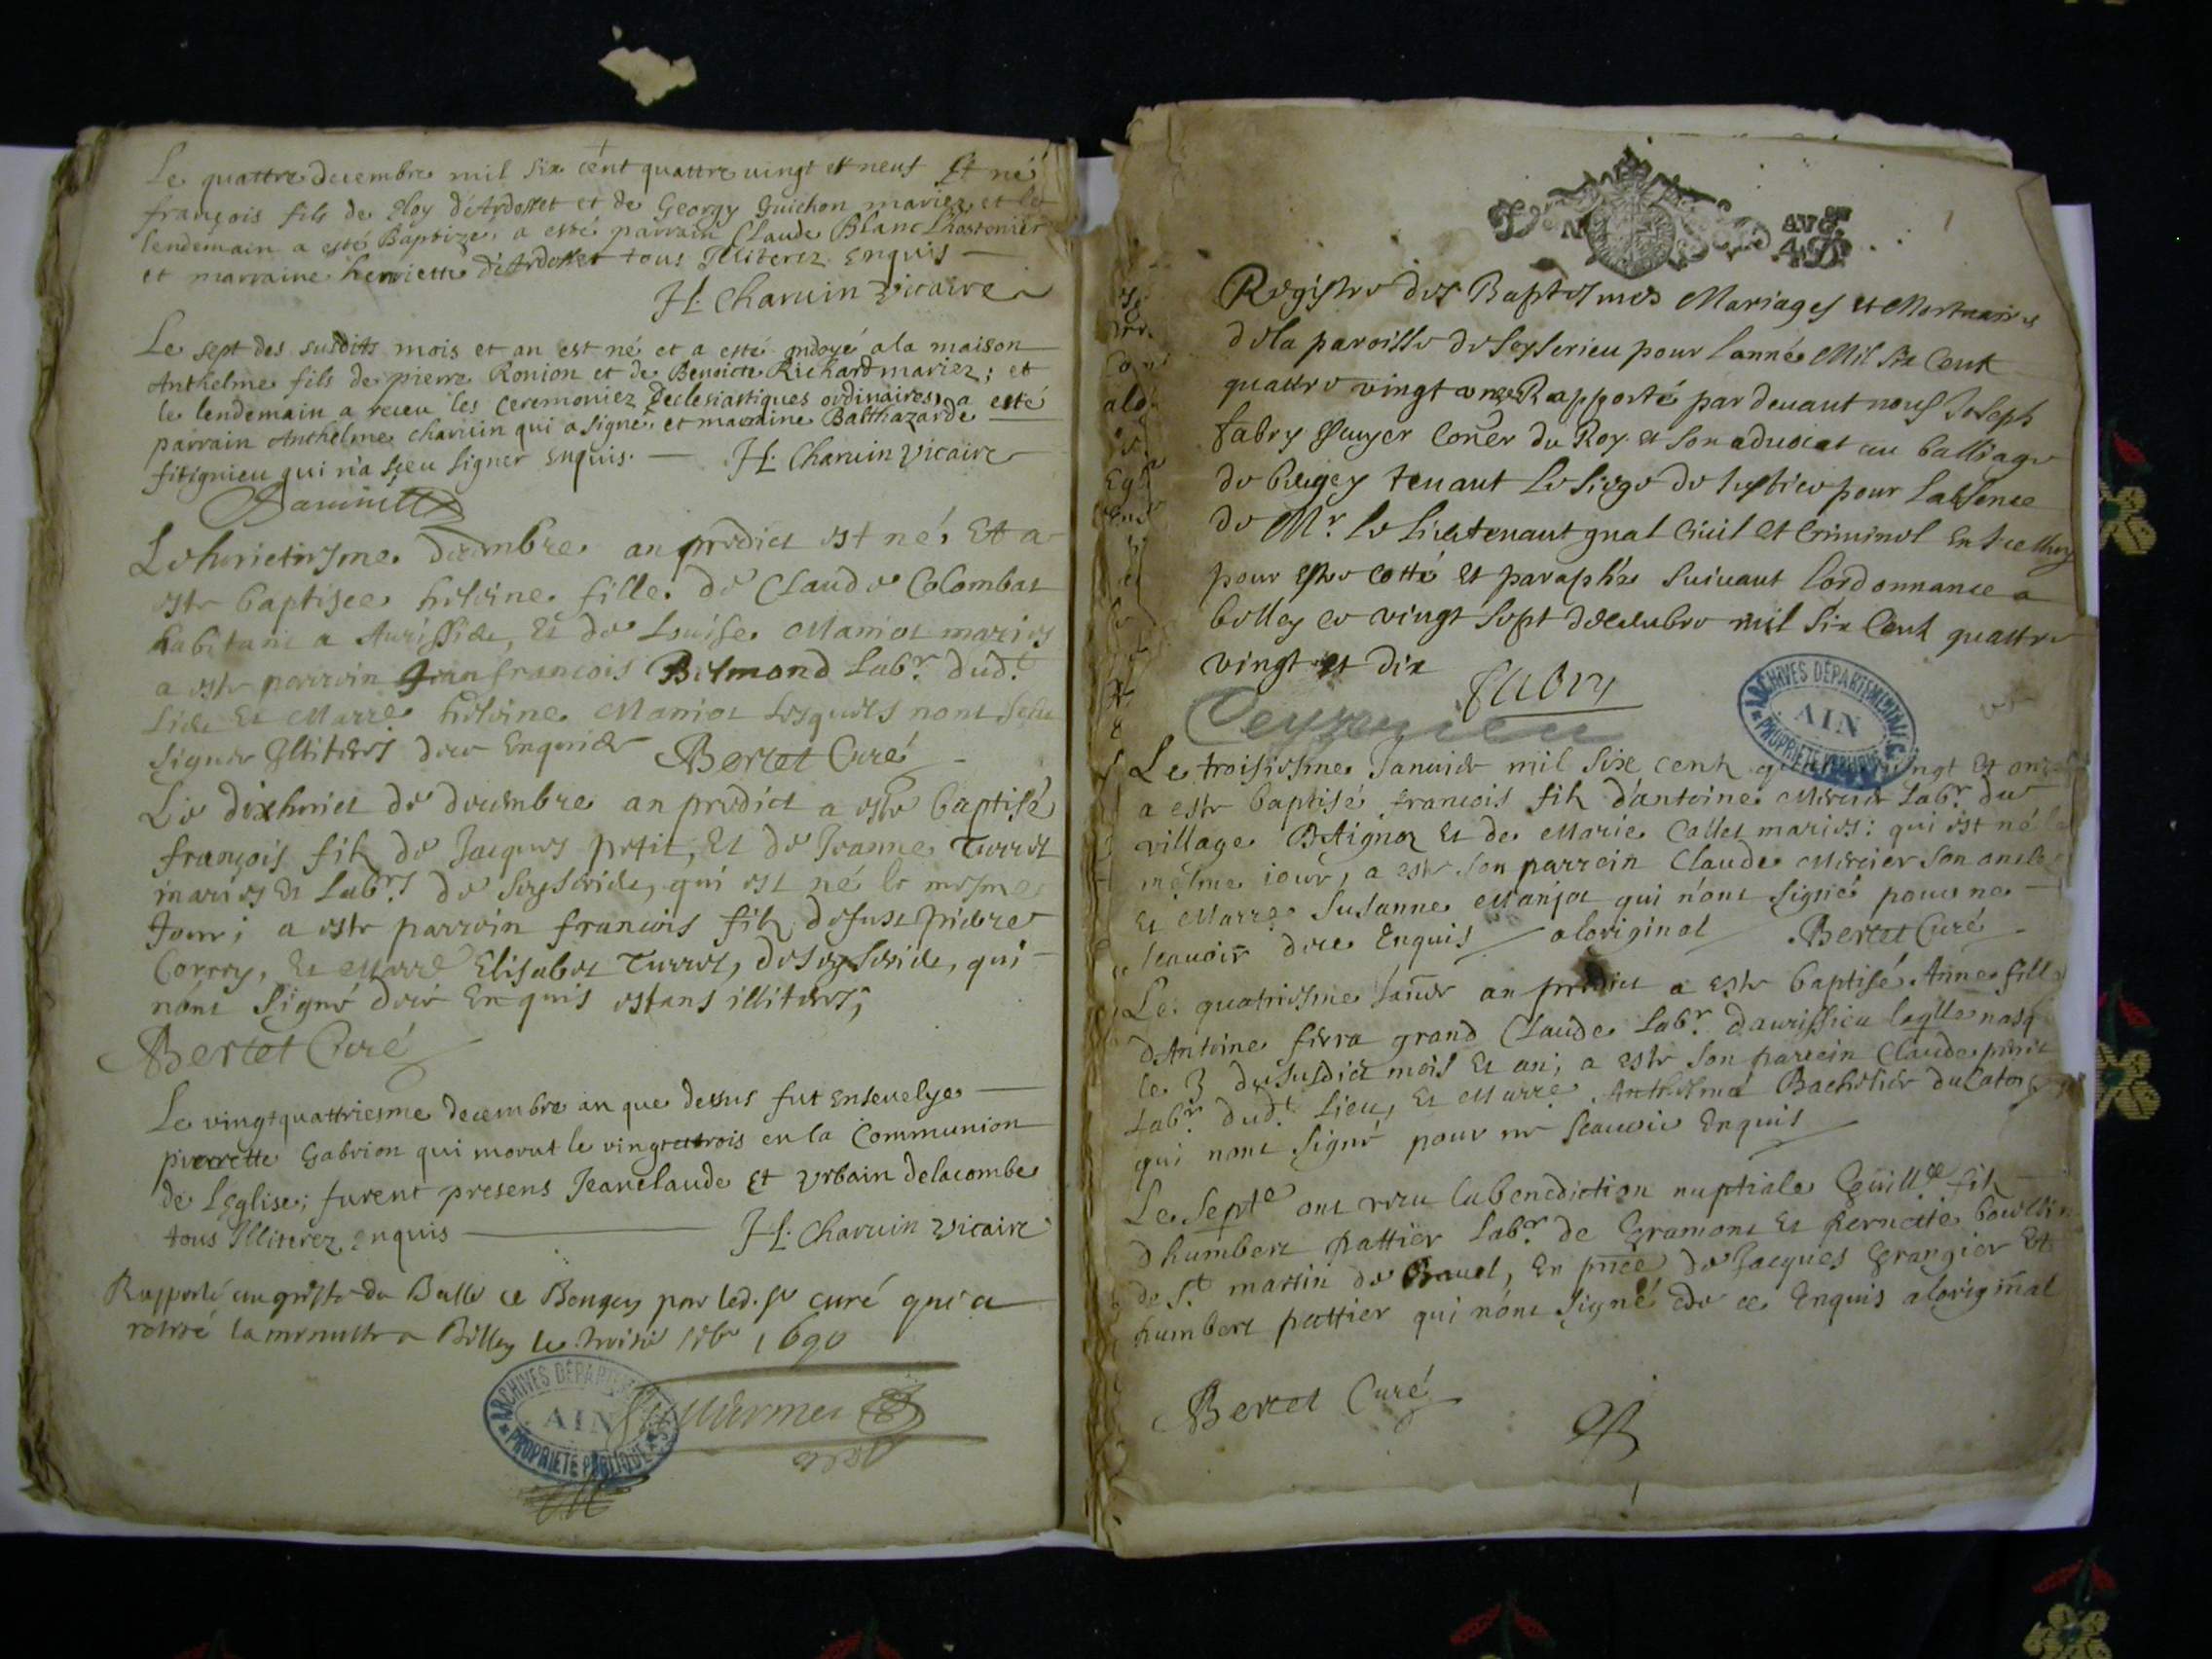 Le quattre decembre mil six cent quattre vingt et neuf Est né
françois fils de Eloy d'Ardosset et de Georgy guichon mariez et le
lendemain a esté Baptizé, a esté parrain Claude Blanc
et marraine henriette d'Ardosset tous Illiterez Enquis
H. Charuin vicaire
Le sept des susdits mois et an est né et a esté ondoyé a la maison
Anthelme fils de pierre Ronion et de Benoicte Richard mariez; et
le lendemain a receu les ceremoniez Ecclesiastiques ordinaires, a esté
parrain Anthelme charuin qui a signé, et marraine Balthazarde
fitignieu qui n'a sceu signer enquis. H. Charuin vicaire
Le huictiesme decembre an predict est né Et a
este baptisee heleine fille de Claude Colombat
habitant a Aurissieu, Et de Louise Maniot maries
a este parrein françois Belmond Labr. dud.t
lieu Et Marre heleine Maniot lesquels nont sceu
signer Illiteres de ce Enquis Bertet Curé
Le dixhuict de decembre an predict a este baptisé
françois filz de Jacques petit, Et de Jeanne Turret
maries Et Labrs de Seyserieu, qui est né le mesme
Jour; a este parrein francois filz defunt pierre
Et Marre Elisabet Turret, de Seyserieu, qui
nont signé de ce Enquis estans illiteres,
Bertet Curé
Le vingtquattriesme decembre an que dessus fut ensevelye
pierrette Gabrion qui morut le vingtetrois en la Communion
de l'Eglise; furent presens Jeanclaude Et Vrbain delacombe
tous Illiterez enquis H. Charuin vicaire
Rapporté au greffe du Ball. de Bougey par led. sr curé qui a
retiré la minutte a Belley le 1690
ARCHIVES DÉPARTEMENTALES
AIN
PROPRIÉTÉ PUBLIQUE
AVG.
4.D.
Registre des Baptesmes Mariages et Mortuaires
de la paroisse de Seyserieu pour l'année Mil six Cent
quattre vingt onze Rapporté par deuant nous Joseph
fabry Escuyer Coner du Roy et son aduocat au balliage
de beugey tenant Le siege de Justice pour l'absence
de Mr. le Lieutenant gnal Ciuil et Criminel
pour estre cotté et paraphé suiuant l'ordonnance a
belley ce vingt sept decembre mil six Cent quattre
vingt et dix fabry
Ceyzerieu
ARCHIVES DÉPARTEMENTALES
AIN
PROPRIÉTÉ PUBLIQUE
Le troisiesme Januier mil sixe cent vingt et onze
a este baptisé francois filz d'antoine Mercier Labr. du
village Et de Marie Callet maries: qui est né le
mesme iour, a este son parrein Claude Mercier son oncle
Et Marre Susanne Manjot qui n'ont signé pour ne
scauoir de ce Enquis a loriginal Bertet Curé
Le quatriesme Janer an predict a este baptisé Anne fille
d'Antoine fierra grand Claude Labr. daurissieu laqlle nasq
le 3 du susdict mois Et an; a este son parrein Claude petit
Labr. dud.t Lieu, Et Marre Anthelma Bachelier
qui nont signé pour ne scauoir Enquis
Le Septe ont receu la benediction nuptiale Guille filz
dhumbert pattier Labr. de Gramont Et pernette
de St. martin de Bauel, En pnce de Jacques Grangier Et
humbert pattier qui n'ont signé de ce Enquis a loriginal
Bertet Curé